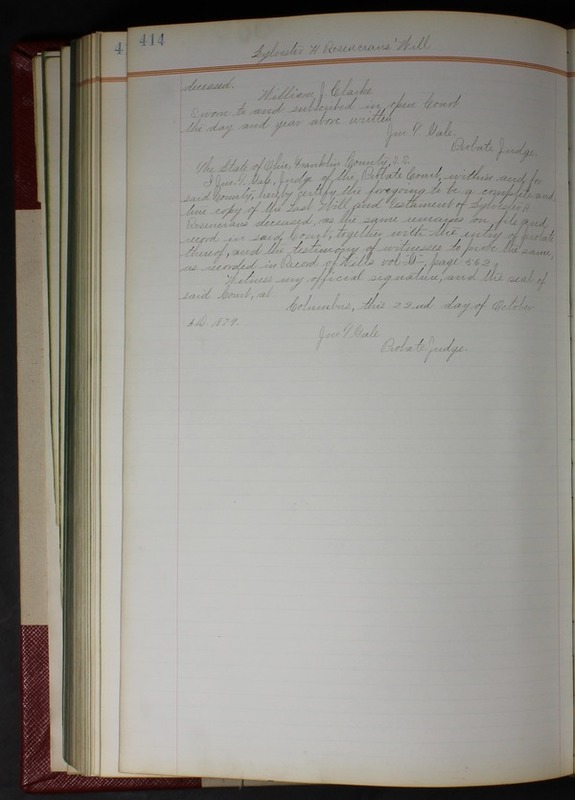 4
414
Sylvester H. Rosencrans' Will
deceased.
William J. Clarke
Sworn to and subscribed in open Court
the day and year above written
Jno. T. Gale.
Probate Judge.
The State of Ohio, Franklin County, S.S.
I Jno. T. Gale, Judge of the Probate Court, within and for
said County, hereby certify the foregoing to be a complete and
true copy of the Last Will and Testament of Sylvester H
Rosencrans deceased, as the same remains on file and
record in said Court, together with the entry of probate
thereof, and the testimony of witnesses to prove the same,
as recorded in Record of Wills vol. page 562
Witness my official signature, and the seal of
said Court, at
Columbus, this 22nd day of October
A.D. 1879.
Jno T. Gale
Probate Judge.